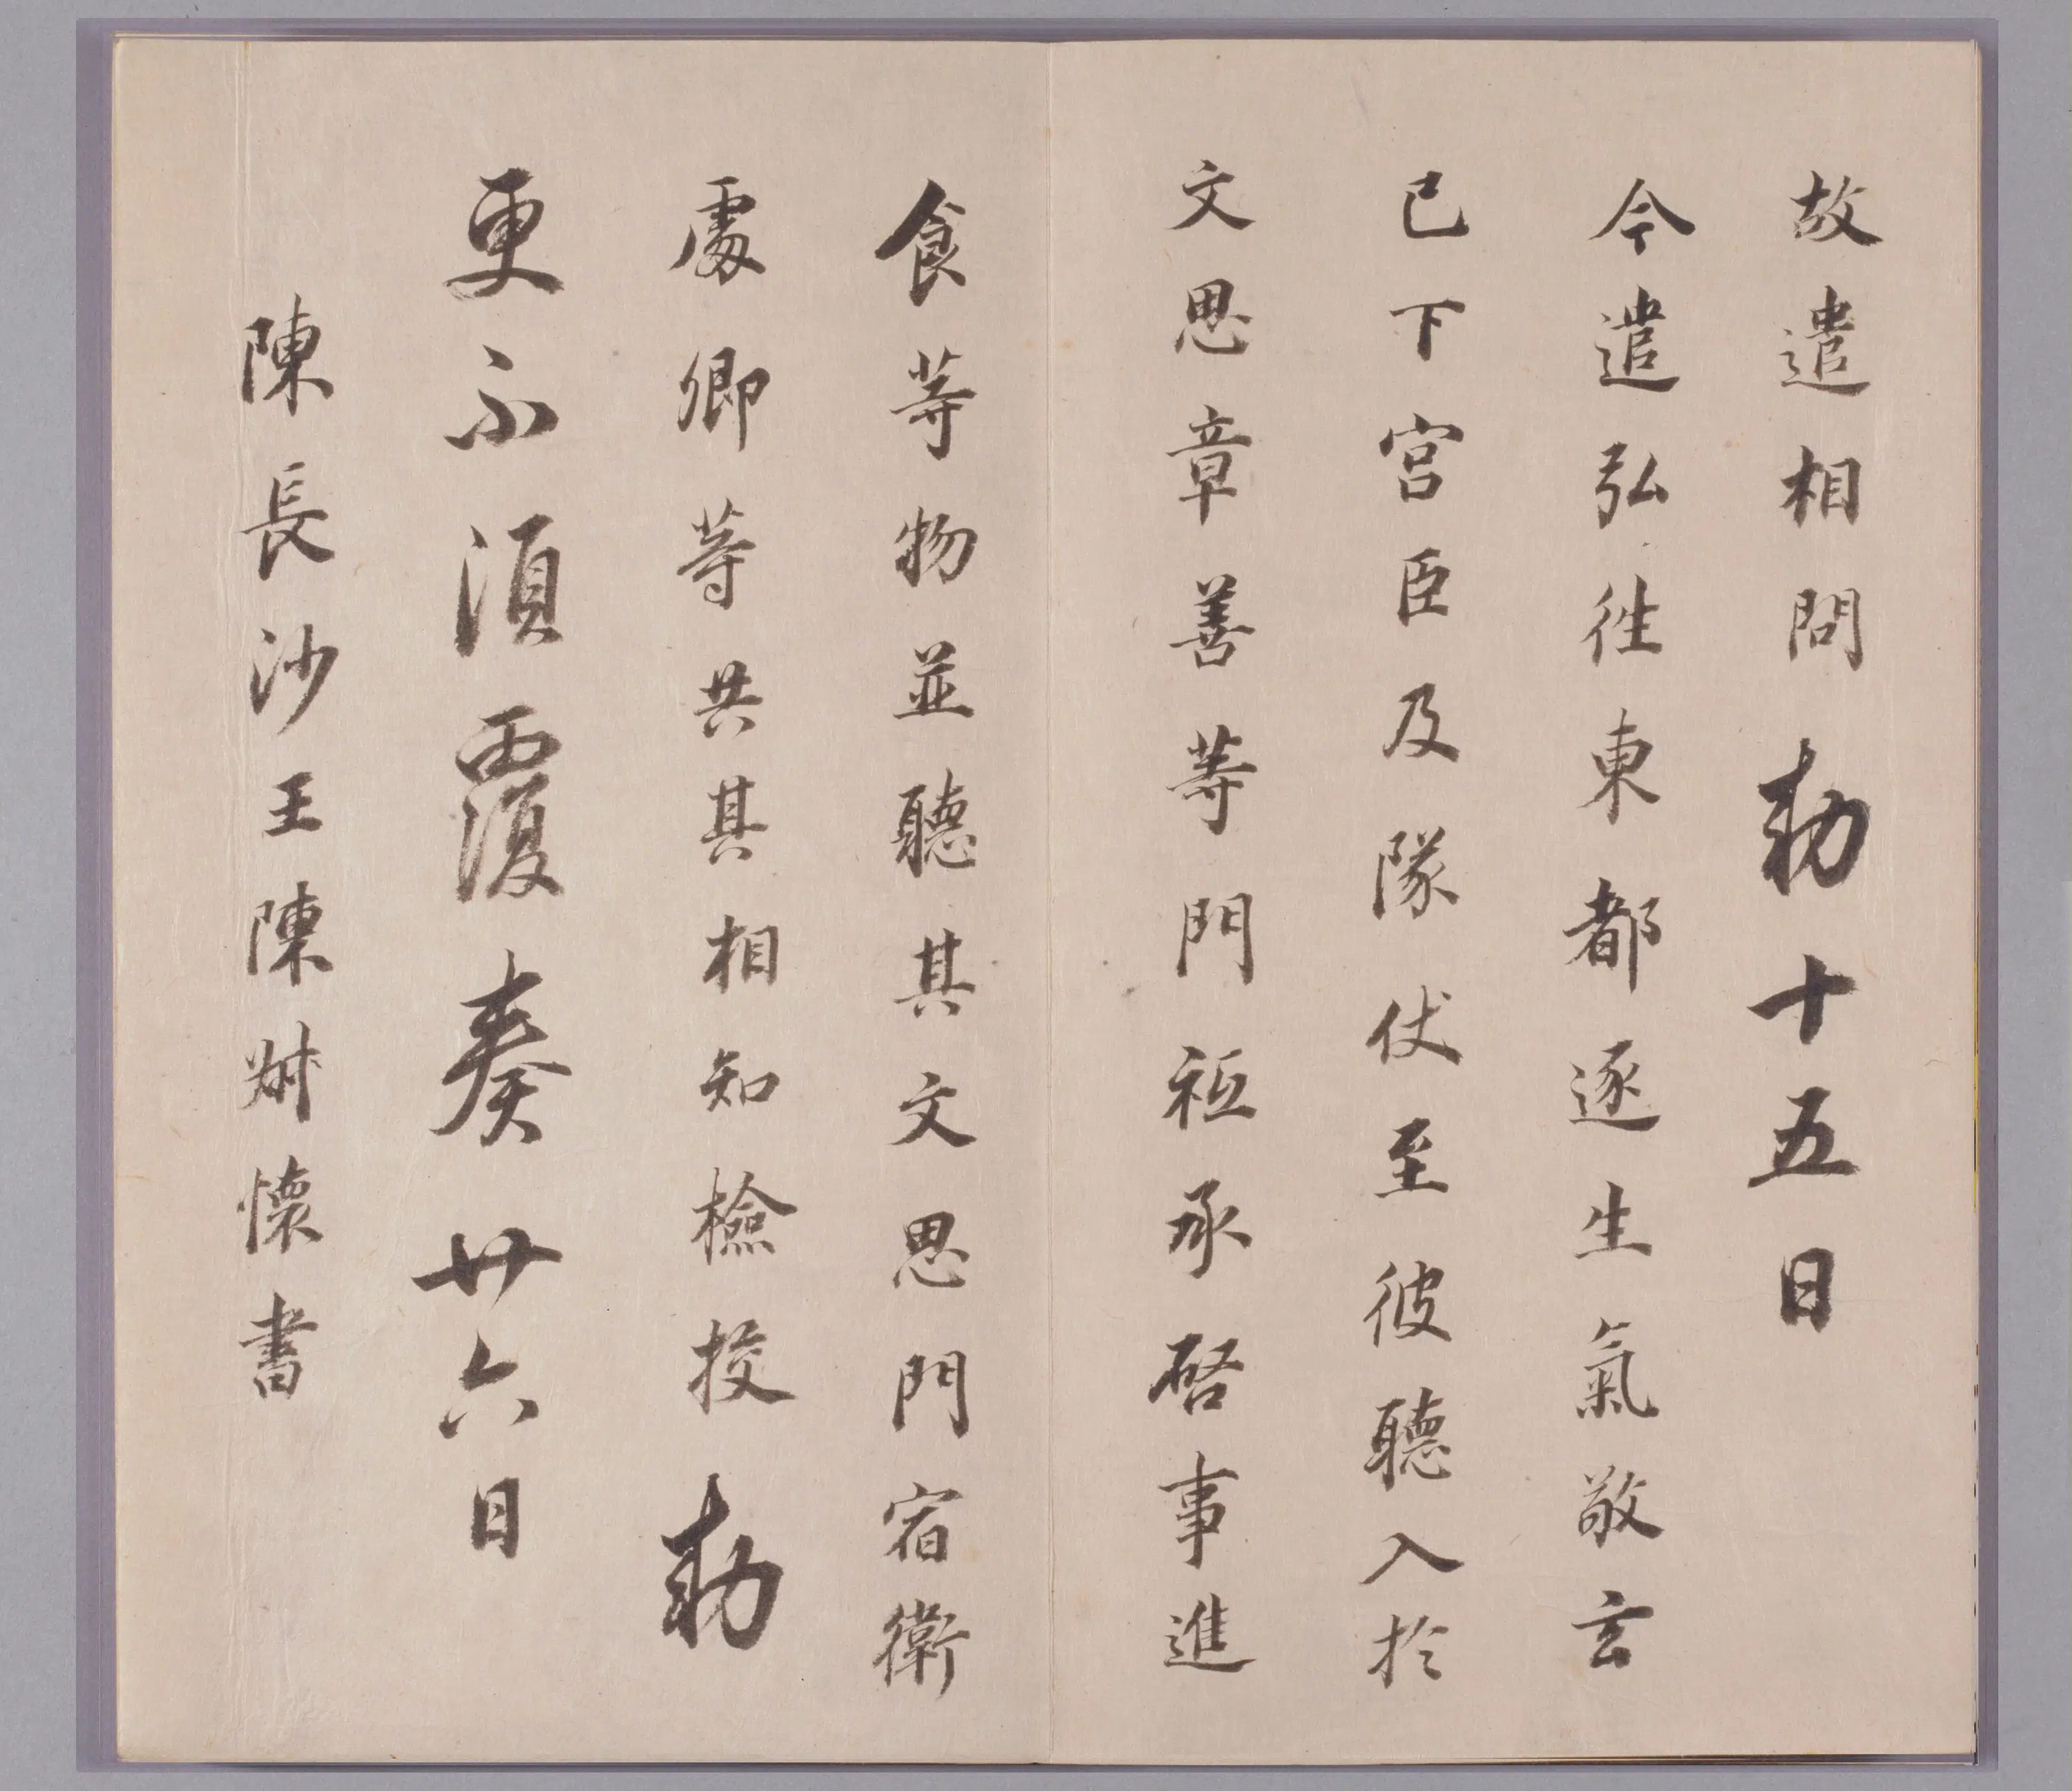 故遣相問 勅 十五日
今遣弘往東都逐生氣敬玄
已下宮臣及隊仗至彼聽入於
文思章善等門祗承啓事進
食等物並聽其文思門宿衛
處卿等共其相知檢校 勅
更不須覆奏 廿六日
陳長沙王陳叔懷書